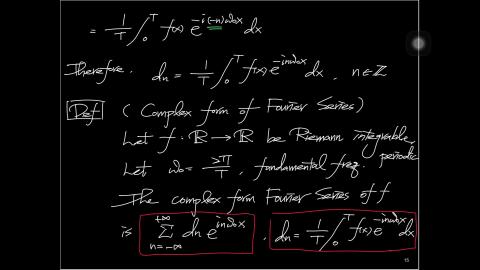 = 1/T ∫₀ᵀ f(x) e^{-i(-n)ω₀x} dx
Therefore. dₙ = 1/T ∫₀ᵀ f(x) e^{-inω₀x} dx , n∈ℤ
Def (Complex form of Fourier Series)
Let f: ℝ → ℝ be Riemann integrable, periodic
Let ω₀ = 2π/T , fundamental freq.
The complex form Fourier Series of f
is Σ_{n=-∞}^{+∞} dₙ e^{inω₀x} , dₙ = 1/T ∫₀ᵀ f(x) e^{-inω₀x} dx
15